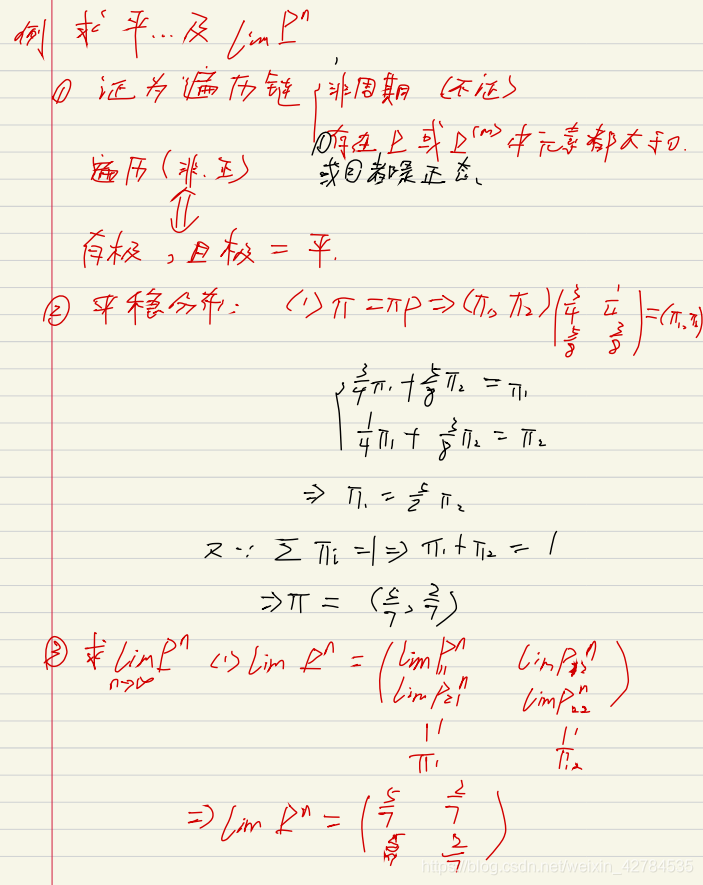 例 求平...及 lim P^n
① 证为遍历链 { 非周期 (不证)
①存在P或P^(m)中元素都大于0.
遍历(非.正) 或②都是正态、
⇕
有极,且极=平.
② 平稳分布: (1) π=πP⇒(π₁, π₂)(3/4 1/4 5/8 3/8)=(π₁,π₂)
{ 3/4π₁+5/8π₂=π₁
1/4π₁+3/8π₂=π₂
⇒ π₁=5/2π₂
又∵ Σπi=1⇒π₁+π₂=1
⇒π=(5/7,2/7)
③ 求 lim P^n (1) lim P^n = (lim P₁₁^n lim P₁₂^n
n→∞ lim P₂₁^n lim P₂₂^n)
|| ||
π₁ π₂
⇒ lim P^n = (5/7 2/7
5/7 2/7)
https://blog.csdn.net/weixin_42784535